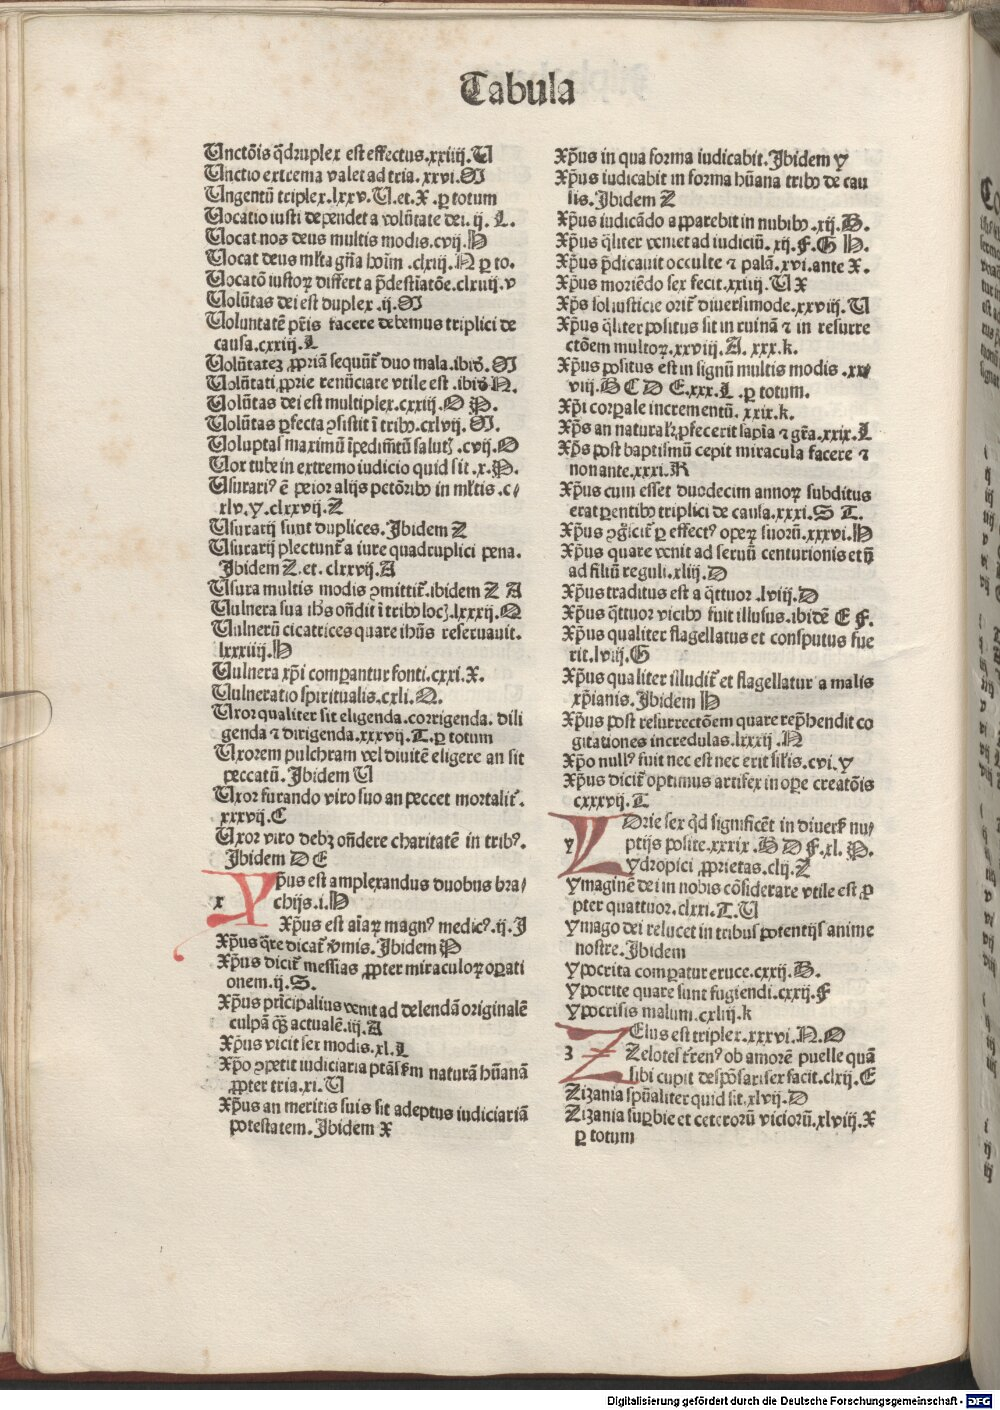 Tabula
Unctōis q̄druplex est effectus.xxiiij.U
Unctio extrema valet ad tria.xxvi.M
Ungentū triplex.lxxv.U.et.X.ꝑ totum
Vocatio iusti dependet a volūtate dei.ij.L.
Vocat nos deus multis modis.cvij.H
Vocat deus mlta gn̄a hoīm.clxiij.N ꝑ to.
Vocatō iustoꝝ differt a p̄destiatōe.clxiiij.v
Volūtas dei est duplex.ij.M
Voluntatē pr̄is facere debemus triplici de
causa.cxxiij.L
Volūtateꝫ ꝓpriā sequūt̄ duo mala.ibid̄.M
Volūtati ꝓprie renūciare vtile est.ibid̄ N.
Volūtas dei est multiplex.cxxiij.O P.
Volūtas ꝑfecta ꝯsistit ī tribꝰ.cxlvij.M.
Voluptas maximū īpedimētū salutꝭ.cvij.O
Vox tube in extremo iudicio quid sit.x.P.
Usurariꝰ ē peior alijs pctōribꝰ in mltis.c⸗
xlv.y.clxxvij.Z
Usurarij sunt duplices.Ibidem Z
Usurarij plectunt̄ a iure quadruplici pena.
Ibidem Z.et.clxxvij.A
Usura multis modis ꝯmittit̄.ibidem Z A
Vulnera sua ihs on̄dit ī tribꝰ locꝭ.lxxxij.Q
Vulnerū cicatrices quare ihūs reseruauit.
lxxxiiij.H
Vulnera xp̄i comꝑantur fonti.cxxi.X.
Vulneratio spiritualis.cxli.Q.
Uxor qualiter sit eligenda.corrigenda.dili
genda ⁊ dirigenda.xxxvij.T.ꝑ totum
Uxorem pulchram vel diuitē eligere an sit
peccatū.Ibidem U
Uxor furando viro suo an peccet mortalit̄.
xxxvij.C
Uxor viro debꝫ on̄dere charitatē in tribꝰ.
Ibidem D E
Xp̄us est amplexandus duobus bra⸗
x chijs.i.H
Xp̄us est aīaꝝ magnꝰ medicꝰ.ij.I
Xp̄us q̄re dicat̄ v̄mis.Ibidem P
Xp̄us dicit̄ messias ꝓpter miraculoꝝ oꝑati
onem.ij.S.
Xp̄us prīcipalius venit ad delendā originalē
culpā qȝ̄ actualē.iij.A
Xp̄us vicit sex modis.xl.L
Xp̄o ꝯpetit iudiciaria ptās fm naturā hūanā
ꝓpter tria.xi.U
Xp̄us an meritis suis sit adeptus iudiciariā
potestatem.Ibidem X
Xp̄us in qua forma iudicabit.Ibidem y
Xp̄us iudicabit in forma hūana tribꝰ de cau
sis.Ibidem Z
Xp̄us iudicādo apparebit in nubibꝰ.xij.B.
Xp̄us q̄liter veniet ad iudiciū.xij.F.G H.
Xp̄us p̄dicauit occulte ⁊ palā.xvi.ante X.
Xp̄us moriēdo sex fecit.xxiiij.U X
Xp̄s sol iusticie orit̄ diuersimode.xxviij.U
Xp̄us q̄liter positus sit in ruinā ⁊ in resurre
ctōem multoꝝ.xxviij.A.xxx.k.
Xp̄us positus est in signū multis modis.xx⸗
viij.B C D E.xxx.L.ꝑ totum.
Xp̄i corpale incrementū.xxix.k.
Xp̄s an naturalꝭ ꝓfecerit sapīa ⁊ gr̄a.xxix.L
Xp̄s post baptismū cepit miracula facere ⁊
non ante.xxxi.R
Xp̄us cum esset duodecim annoꝝ subditus
erat parentibꝰ triplici de causa.xxxi.S T.
Xp̄us ꝯgicit̄ ꝑ effectꝰ opeꝝ suorū.xxxvi.H
Xp̄us quare venit ad seruū centurionis et n̄
ad filiū reguli.xliij.D
Xp̄us traditus est a q̄ttuor.lviij.D
Xp̄us q̄ttuor vicibꝰ fuit illusus.ibidē E F.
Xp̄us qualiter flagellatus et consputus fue
rit.lviij.G
Xp̄us qualiter illudit̄ et flagellatur a malis
xp̄ianis.Ibidem H
Xp̄us post resurrectōem quare rep̄hendit co
gitationes incredulas.lxxxij.N
Xp̄o nullꝰ fuit nec est nec erit siłis.cvi.y
Xp̄us dicit̄ optimus artifex in oꝑe creatōis
cxxxvij.T
Ydrie sex qd significēt in diuers̄ nu⸗
y ptijs posite.xxxix.B D F.xl.P.
ydropici ꝓprietas.clij.Z
ymaginē dei in nobis cōsiderare vtile est ꝓ
pter quattuor.clxxi.T.U
ymago dei relucet in tribus potentijs anime
nostre.Ibidem
ypocrita comꝑatur eruce.cxxij.B.
ypocrite quare sunt fugiendi.cxxij.F
ypocrisis malum.cxliij.k
Zelus est triplex.xxxvi.N.O
z Zelotes t̄renꝰ ob amorē puelle quā
sibi cupit despōsari sex facit.clxij.E
Zizania spūaliter quid sit.xlvij.D
Zizania suꝑbie et ceterorū viciorū.xlviij.X
ꝑ totum
Digitalisierung gefördert durch die Deutsche Forschungsgemeinschaft - DFG